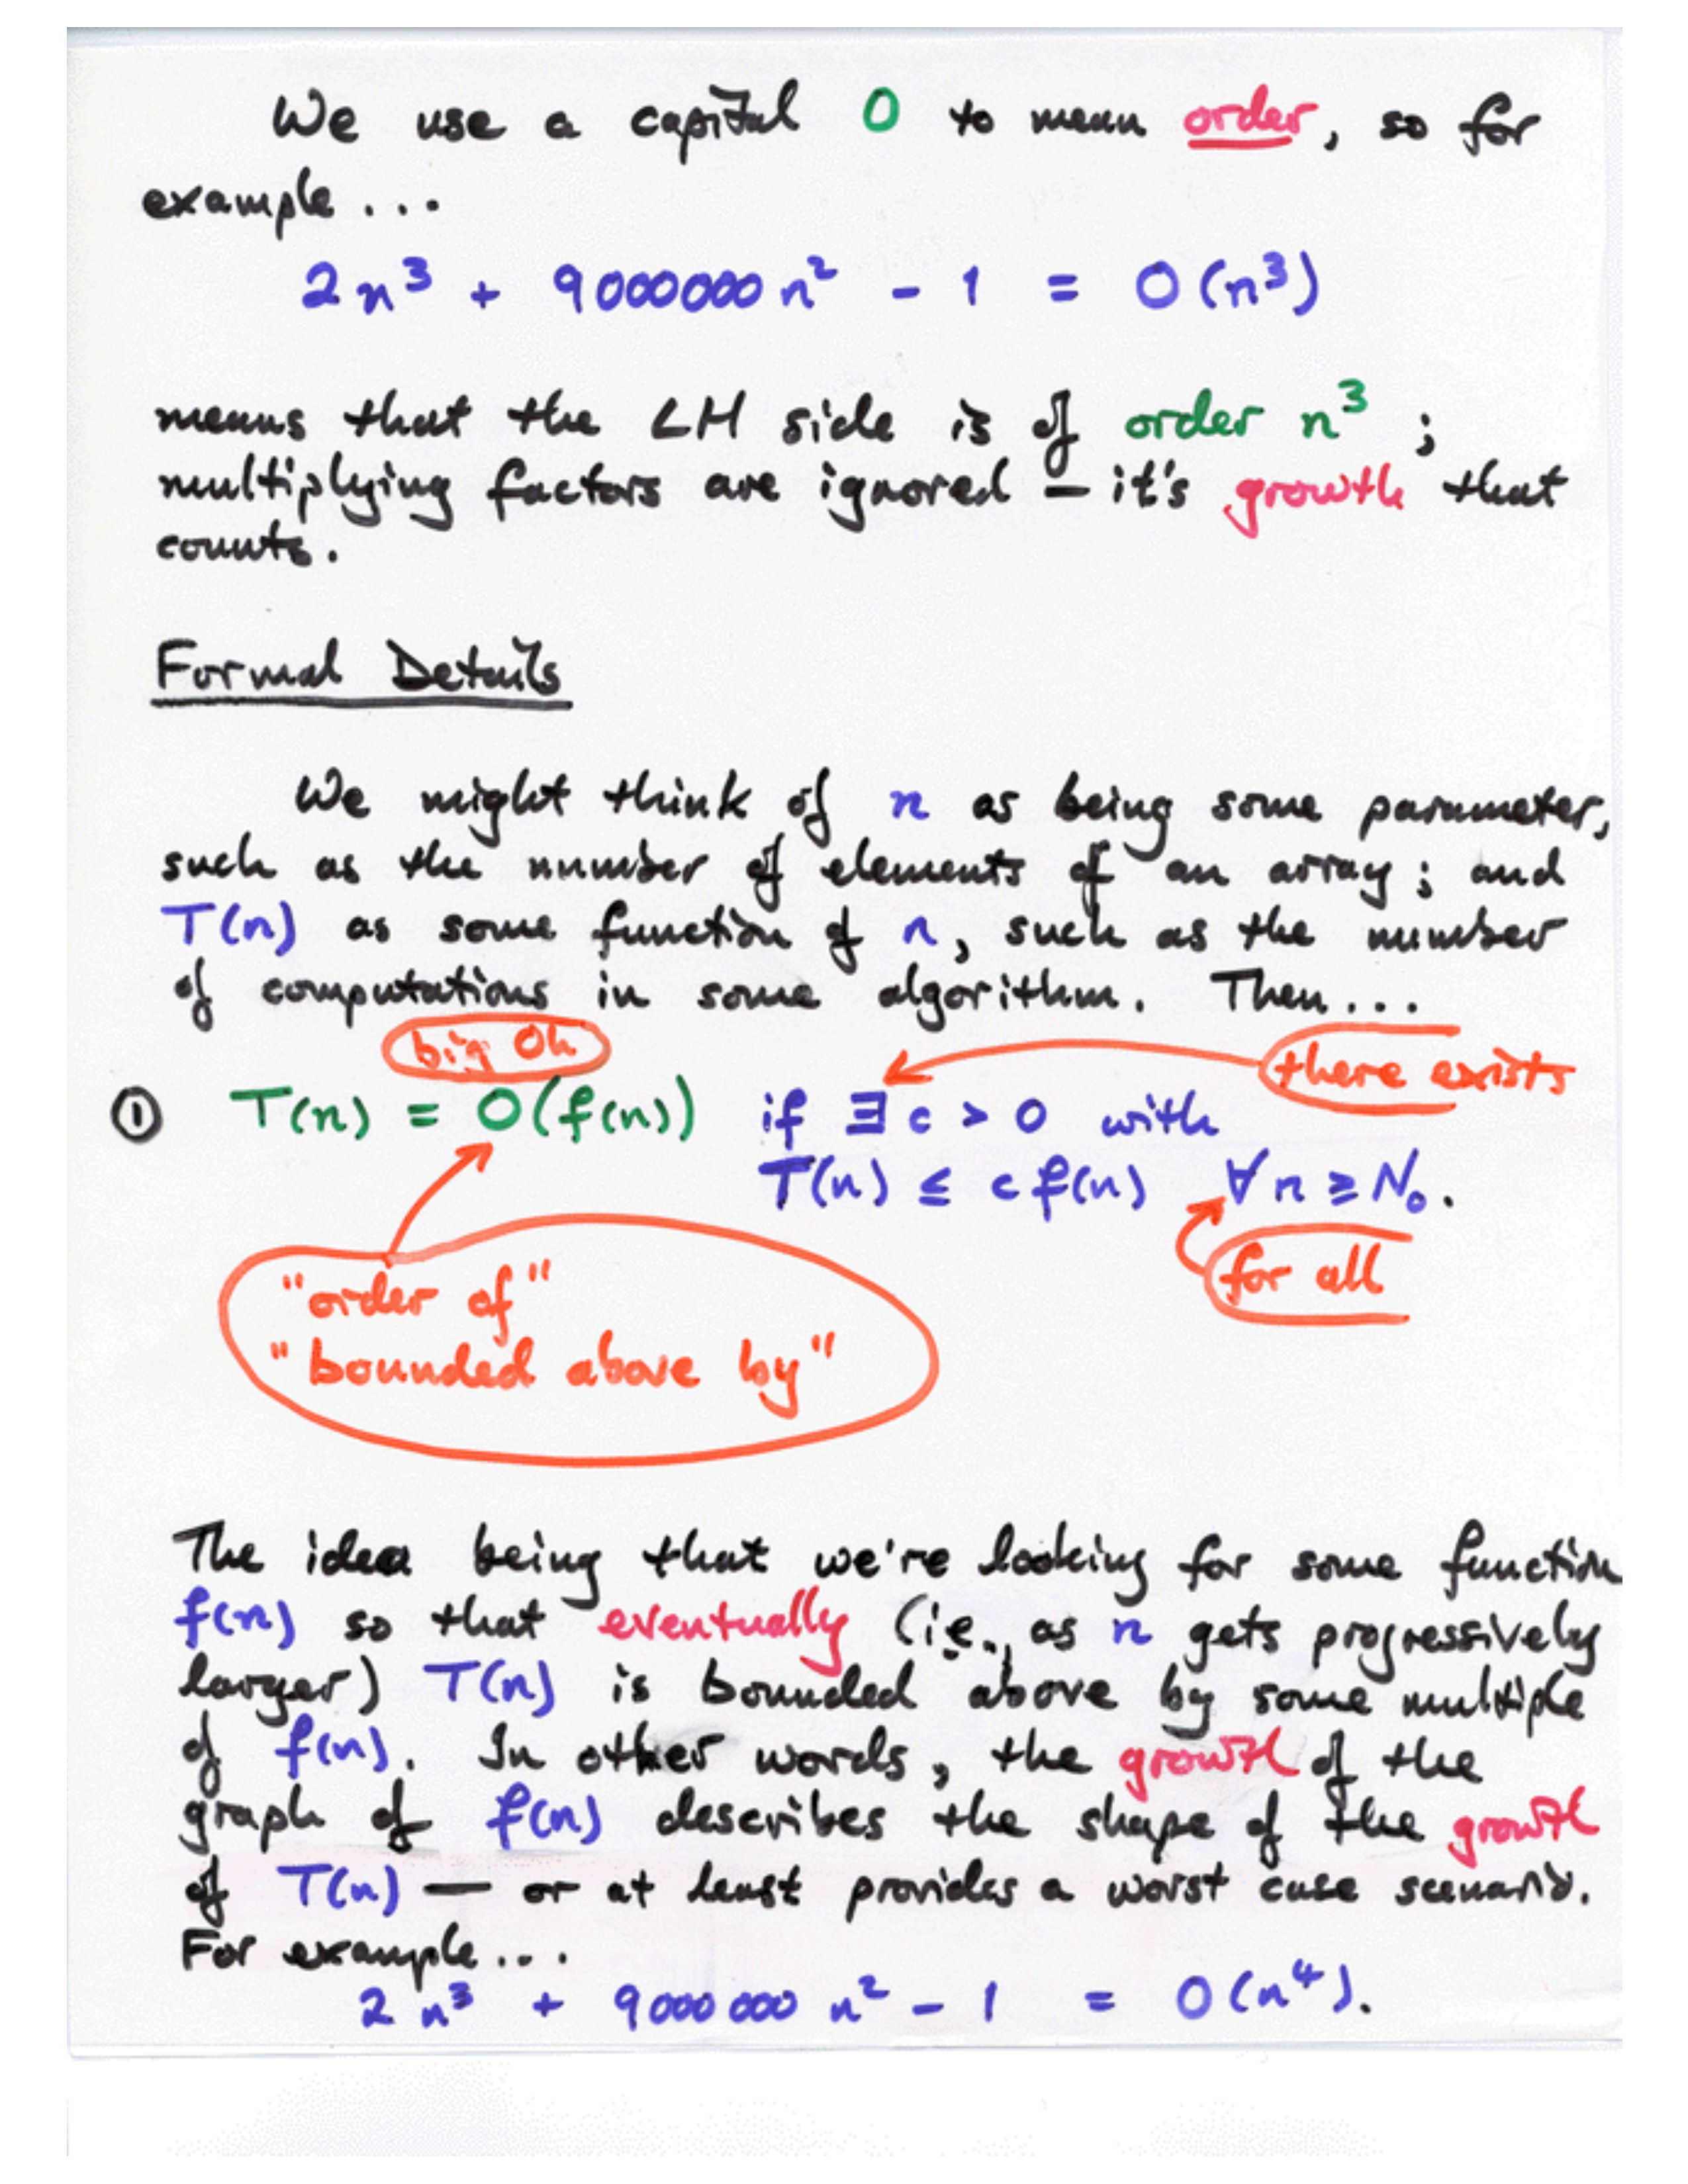 We use a capital O to mean order, so for
example ...
2n³ + 9000000n² - 1 = O(n³)
means that the LH side is of order n³ ;
multiplying factors are ignored - it's growth that
counts.
Formal Details
We might think of n as being some parameter,
such as the number of elements of an array ; and
T(n) as some function of n, such as the number
of computations in some algorithm. Then ...
big Oh
there exists
① T(n) = O(f(n)) if ∃ c > 0 with
T(n) ≤ c f(n) ∀ n ≥ N₀.
for all
"order of"
"bounded above by"
The idea being that we're looking for some function
f(n) so that eventually (i.e., as n gets progressively
larger) T(n) is bounded above by some multiple
of f(n). In other words, the growth of the
graph of f(n) describes the shape of the growth
of T(n) — or at least provides a worst case scenario.
For example ...
2n³ + 9000000 n² - 1 = O(n⁴).